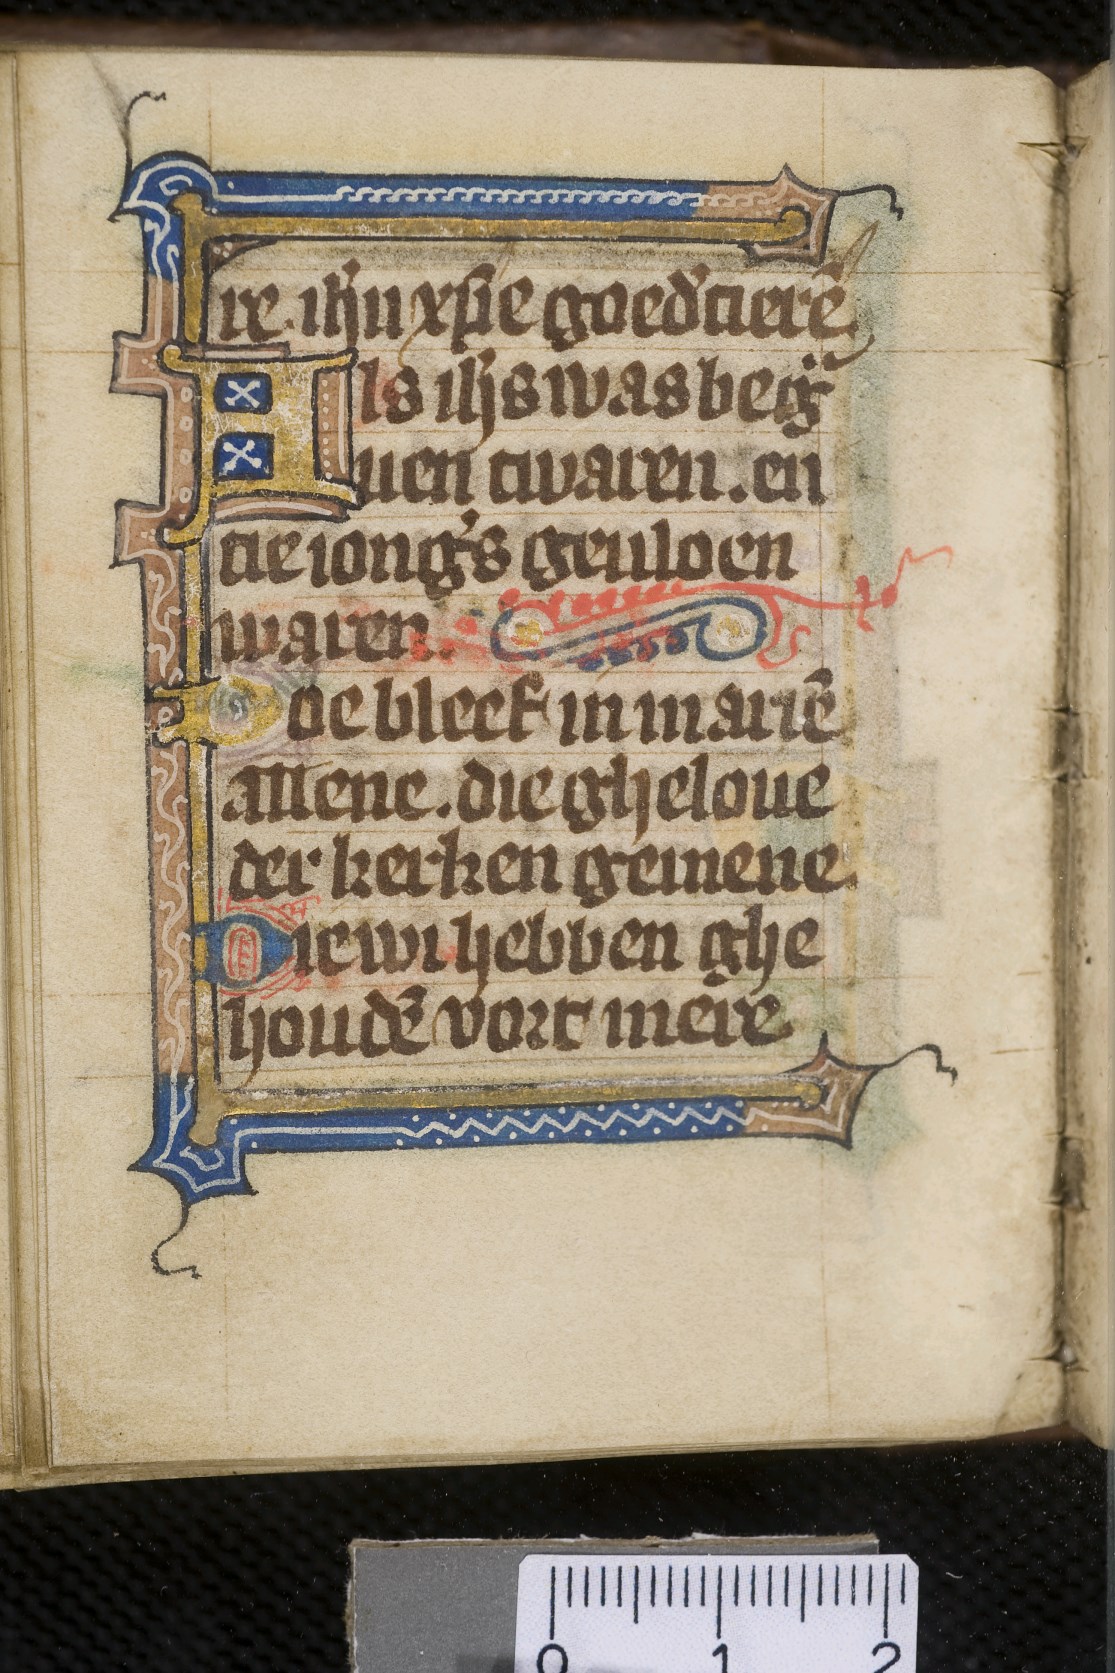 re. ih̄u xp̄e goed᷒tierē
Als ih̄s was beg̾
uen twaren. en
tie iong᷒s geuloen
waren.
Ode bleef in mariē
allene. die gheloue
der kerken gemene.
Die wi hebben ghe
houdē vort mere
0 1 2